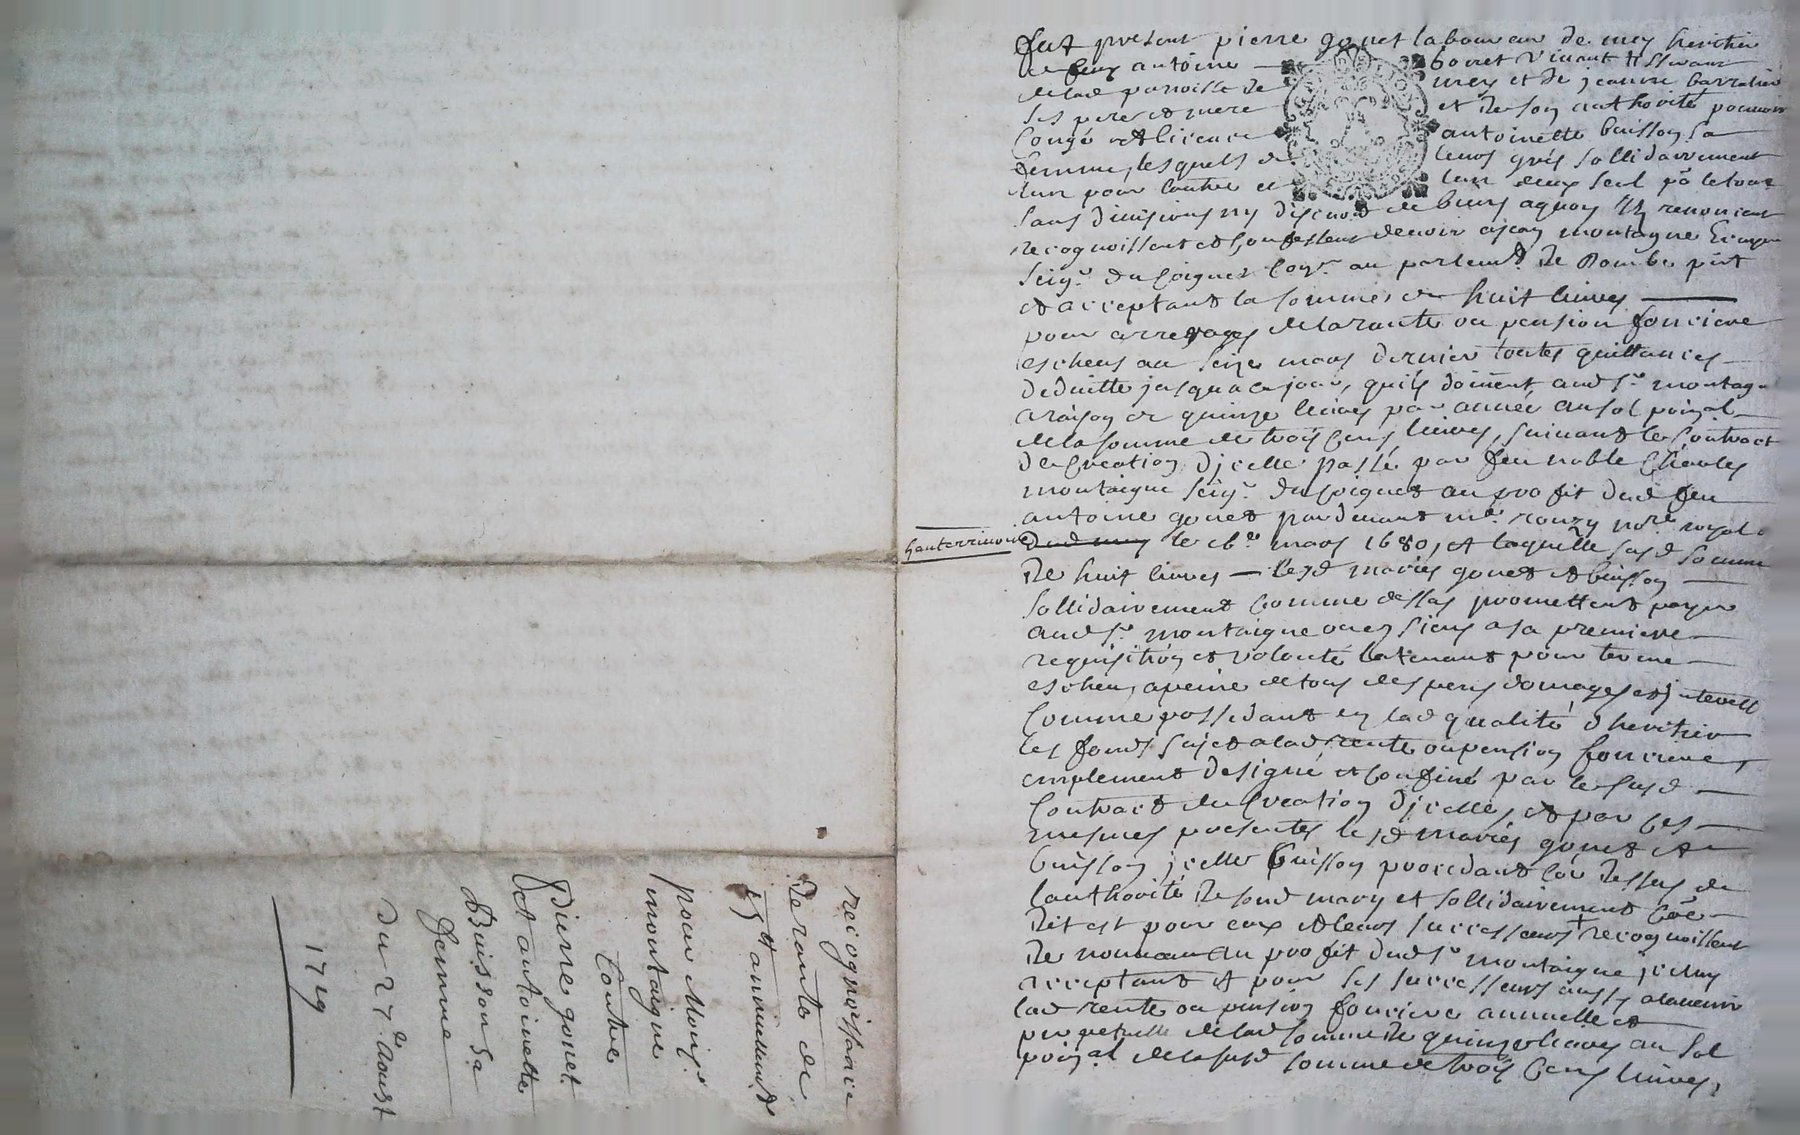 fut present pierre gonet laboureur de mey heritier
de feu antoine gonet vivant tissurant
de lad parroisse de mey et de jeanne barralier
ses pere et mere et de son authorité pouuoir
congé et licence antoinette buisson sa
femme, lesquels de leurs grés sollidairement
lun pour lautre et lun deux seul po le tout
sans diuisions ny discuon de biens a quoy ils renoncent
recognoissent et confessent deuoir a jean montagne Ecuyer
seigr du poiguet conr au parlemt de Dombe pnt
et acceptant la somme de huit liures
pour arrerages de la rante ou pension fonciere
escheus au seize mars dernier toutes quittances
deduitte jusqua ce jour, quils doiuent aud sr montag
a raison de quinze liures par année au sol poinal
de la somme de trois cens liures, suiuant le contract
de creation djcelle passé par feu noble Charles
montaigne seigr du poiguet au profit dud feu
antoine gonet pardeuant me rouzy nore royal
hauterriuoire
dud mey le 16e mars 1680, et laquelle susd somme
de huit liures les d mariés gonet et buisson
sollidairement comme dessus promettent payer
aud sr montaigne ou es siens a sa premiere
requisition et volonté le tenant pour terme
escheu, a peine de tous despens domages et jnterest
comme possedant en lad qualité dheritier
les fonds sujet a lad rente ou pension fonciere,
emplement designé et confiné par le susd
contract de creation djcelle, et par ces
mesmes presentes les d mariés gonet et
buisson jcelle buisson procedant cõe dessus de
lauthorité de sond mary et sollidairement cõe
dit est pour eux et leurs successeurs + recognoissent
de nouueau au profit dud sr montaigne jceluy
acceptant et pour ses successeurs aussy a laduenir
lad rente ou pension fonciere annuelle et
perpetuelle de lad somme de quinze liures au sol
poinal de la susd somme de trois cens liures,
recognoissance
de rante de
15 tt annuellemt
pour Moize
montaigne
Contre
Pierre gonet
et antoinette
Buisson sa
femme
Du 27e aoust
1719